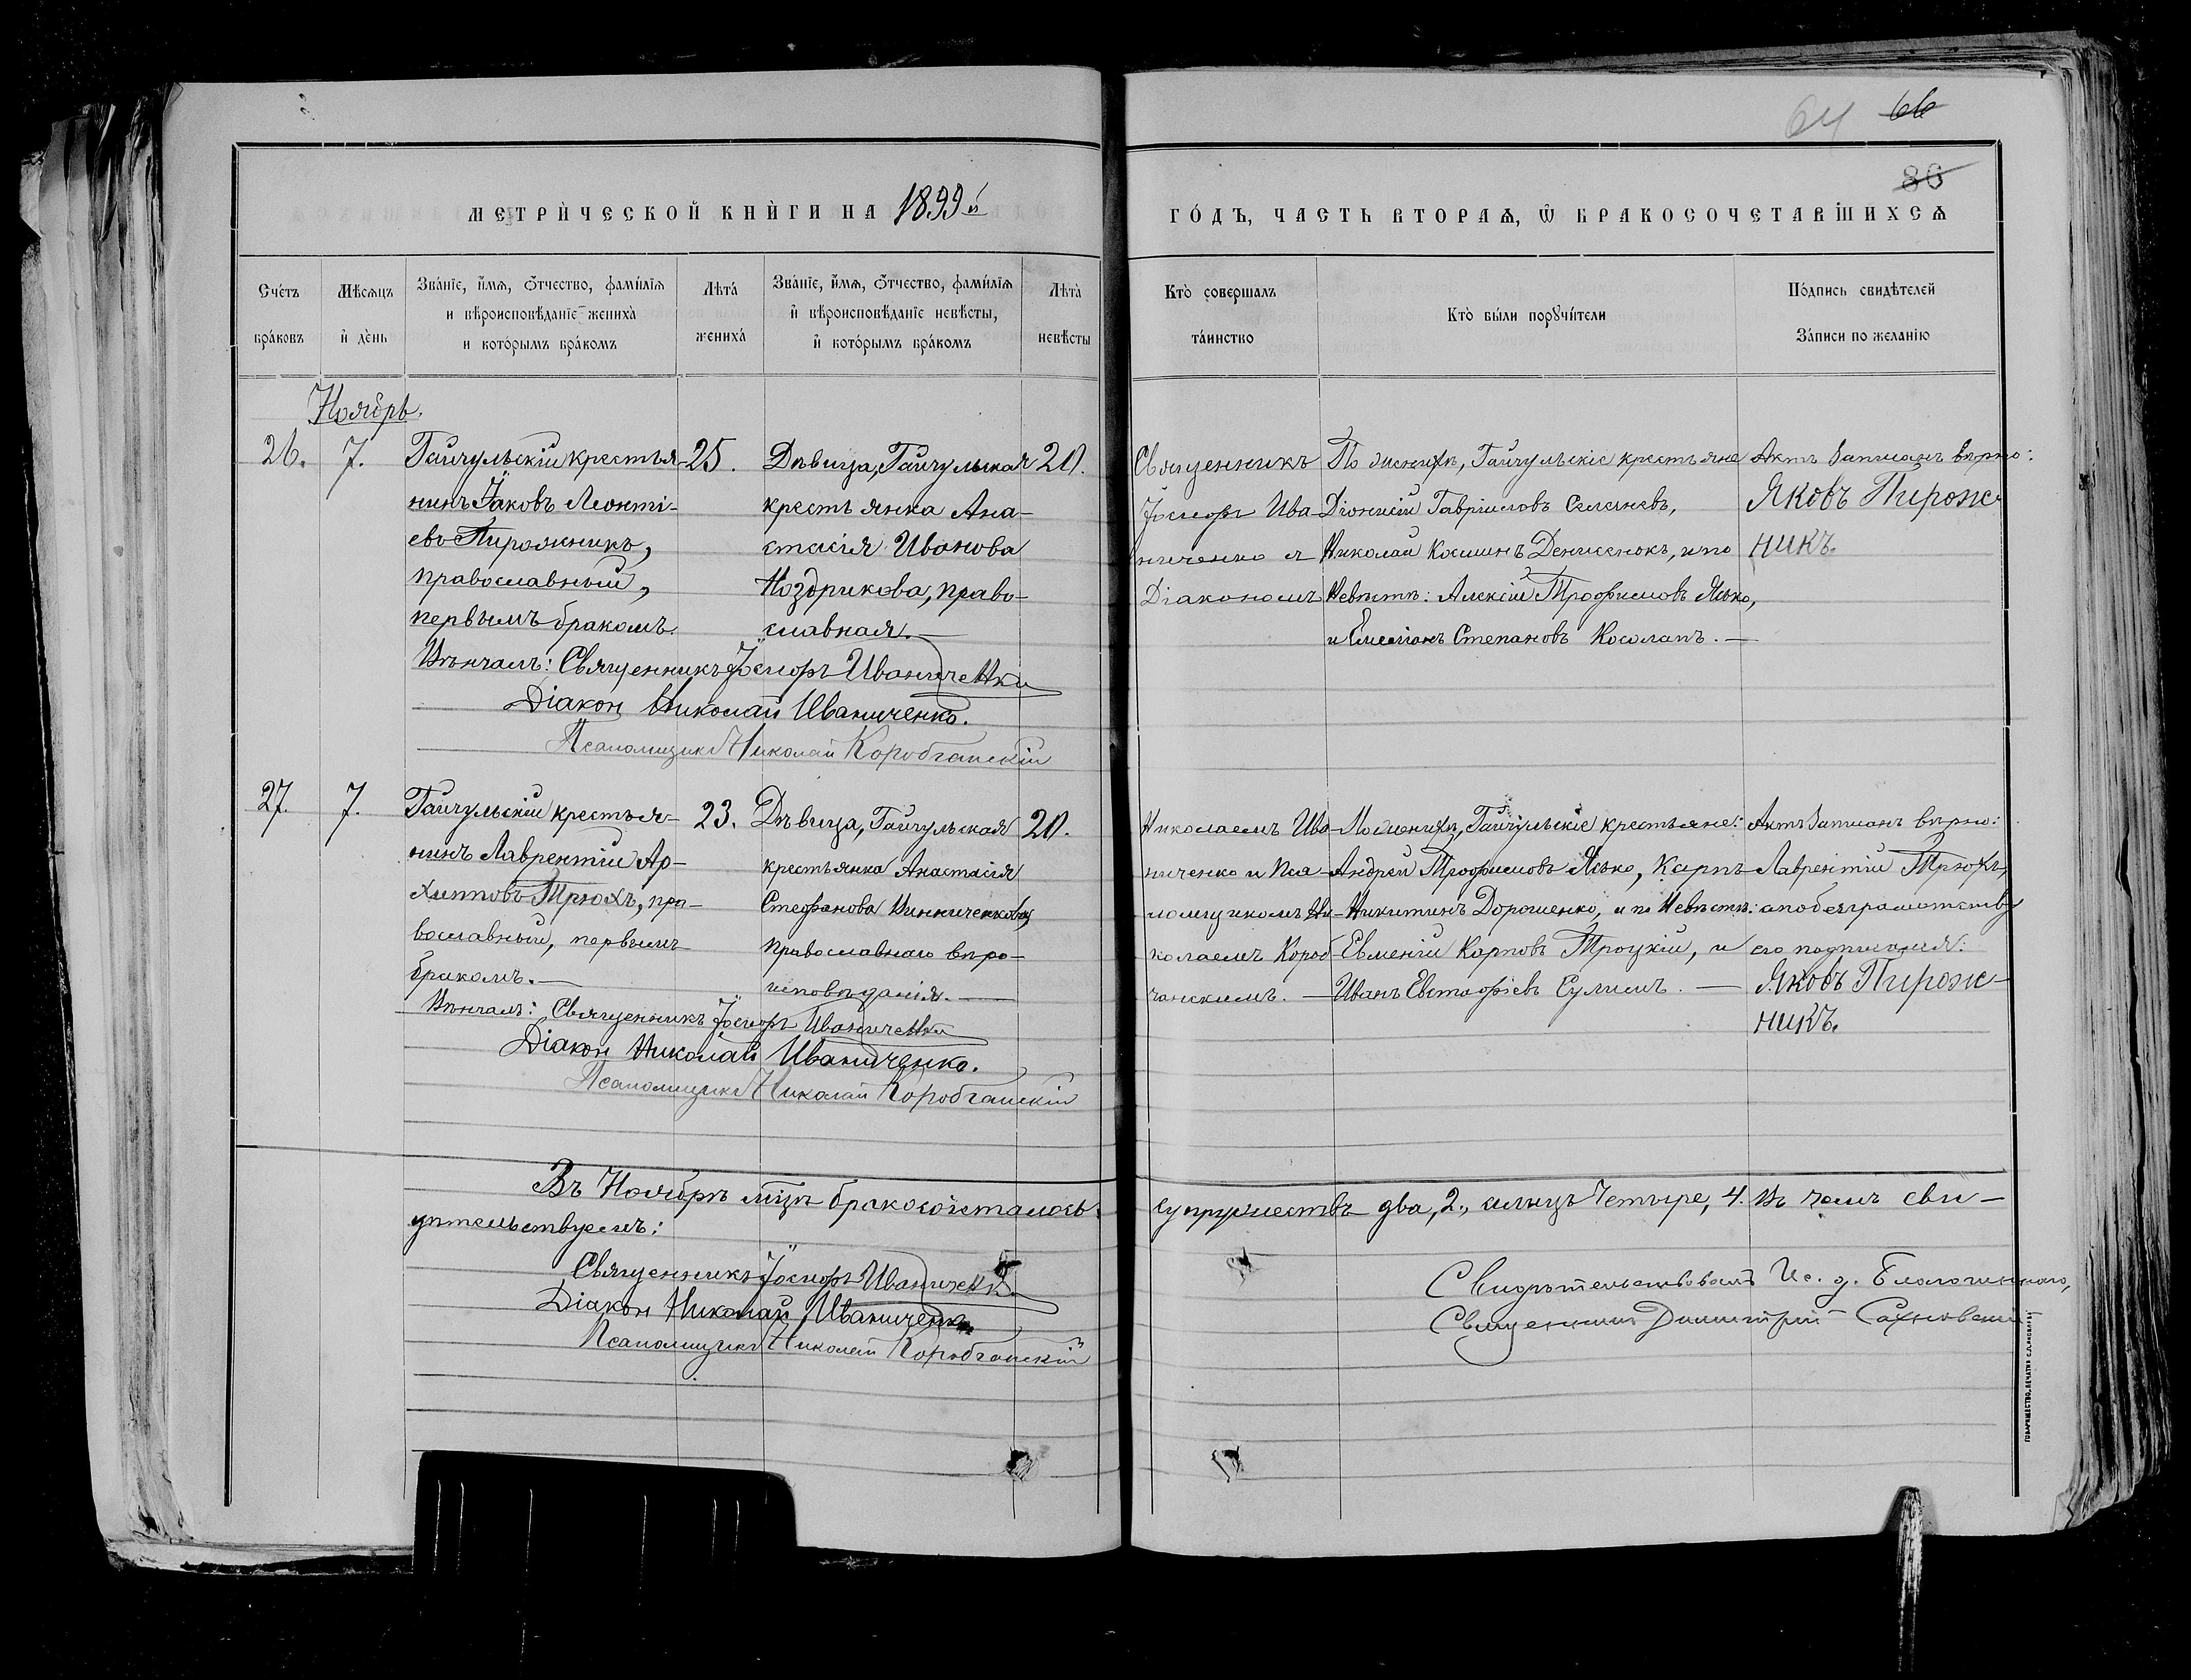 64 66
86
МЕТРИЧЕСКОЙ КНИГИ НА 1899й
ГОДЪ, ЧАСТЬ ВТОРАѦ, Ѿ БРАКОСОЧЕТАВШИХСѦ
Счетъ браковъ
Мѣсяцъ и день
Званіе, имя, отчество, фамилія
и вѣроисповѣданіе жениха
и которымъ бракомъ
Лѣта жениха
Званіе, имя, отчество, фамилія
и вѣроисповѣданіе невѣсты,
и которымъ бракомъ
Лѣта невѣсты
Кто совершалъ таинство
Кто были поручители
Подпись свидѣтелей
Записи по желанію
Ноябрь.
26. 7.
Гайчульскій крестья-
нинъ Іаковъ Леонті-
евъ Пирожникъ,
православный,
первымъ бракомъ.
25.
Дѣвица, Гайчульская
крестьянка Ана-
стасія Иванова
Ноздрикова, право-
славная.
20.
Священникъ
Іосифъ Ива-
ниченко и
Діакономъ
По женихѣ, Гайчульскіе крестьяне
Діонисій Гавріиловъ
Николай Косминъ Денисенокъ, и по
Невѣстѣ: Алексій Трофимовъ Ясько,
и Емеліанъ Степановъ Косолапъ.
Актъ записанъ вѣрно:
Яковъ Пирож-
никъ.
Вѣнчалъ: Священникъ Іосифъ Иваниченко
Діакон Николай Иваниченко.
Псаломщикъ Николай Коробчанскій
27. 7.
Гайчульскій крестья-
нинъ Лаврентій Ар-
хиповъ Трюхъ, пра-
вославный, первымъ
бракомъ.
23.
Дѣвица, Гайчульская
крестьянка Анастасія
Стефанова Винниченкова,
Православнаго вѣро-
исповѣданія.
20.
Николаемъ Ива-
ниченко и Пса-
ломщикомъ Ни-
колаемъ Короб-
чанскимъ.
По женихѣ, Гайчульскіе крестьяне:
Андрей Трофимовъ Ясько, Карпъ
Никитинъ Дорошенко, и по Невѣстѣ:
Евменій Карповъ Троцкій, и
Иванъ Евстафіевъ Сулимъ.
Актъ записанъ вѣрно:
Лаврентій Трюхъ,
а по безграмотству
его подписался:
Яковъ Пирож-
никъ.
Вѣнчалъ: Священникъ Іосифъ Иваниченко
Діакон Николай Иваниченко.
Псаломщикъ Николай Коробчанскій
Въ Ноябрѣ мцѣ бракосочеталось супружествъ два, 2., а лицъ Четыре, 4. Въ чемъ сви-
дѣтельствуемъ:
Священникъ Іосифъ Иваниченко
Діакон Николай Иваниченко
Псаломщикъ Николай Коробчанскій
Свидѣтельствовалъ Ис. д. Благочиннаго,
Священникъ Димитрій Сахновскій